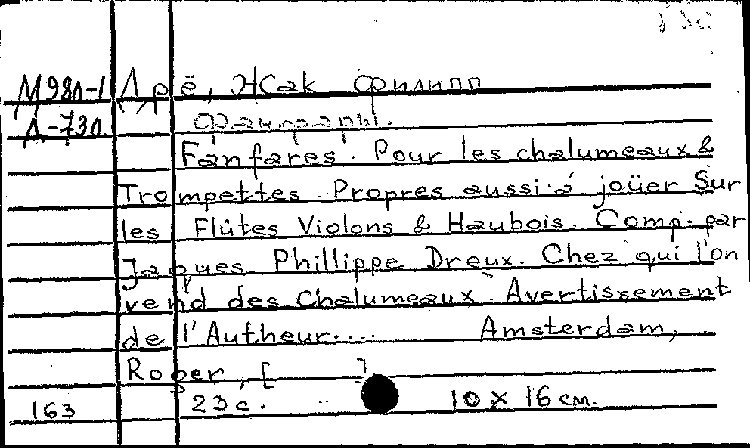 М981-1 Дрё, Жак Филипп
Д-730 Фанфары.
Fanfares. Pour les chalumeaux &
Trompettes Propres aussi à joüer Sur
les Flûtes Violons & Haubois. Comp. par
Jaques Phillippe Dreux. Chez qui l'on
vend des Chalumeaux. Avertissement
de l'Autheur.... Amsterdam,
Roger, [ ]
163 23 c. 10 x 16 см.